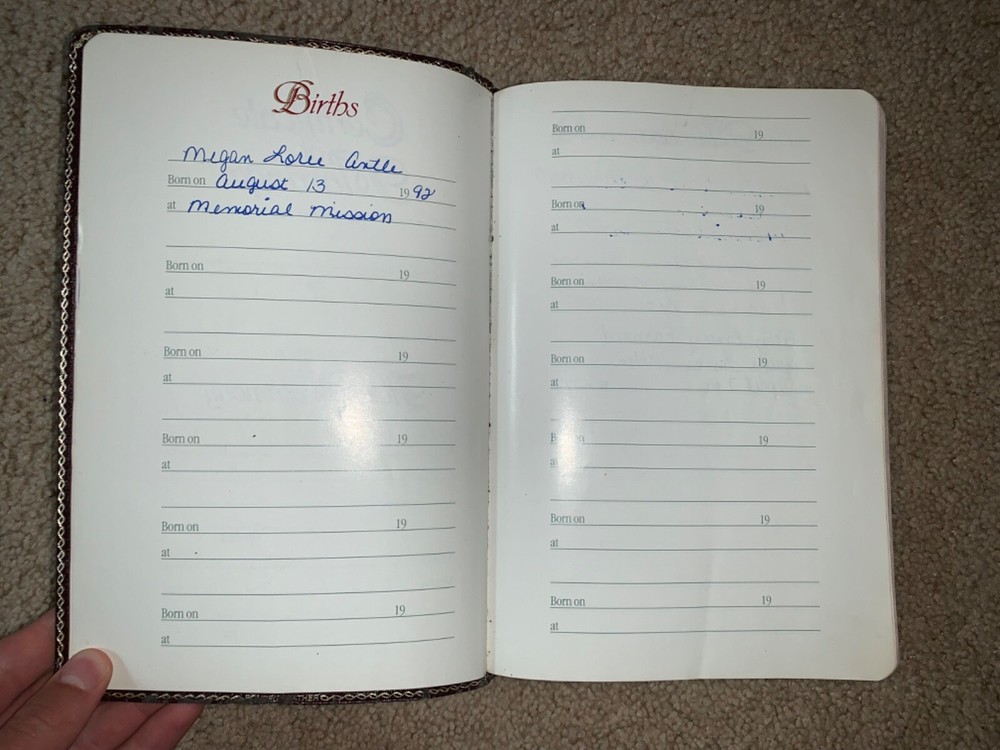 Births
Megan Loree Antle
Born on August 13 1992
at Memorial Mission
Born on 19
at
Born on 19
at
Born on 19
at
Born on 19
at
Born on 19
at
Born on 19
at
Born on 19
at
Born on 19
at
Born on 19
at
Born on 19
at
Born on 19
at
Born on 19
at